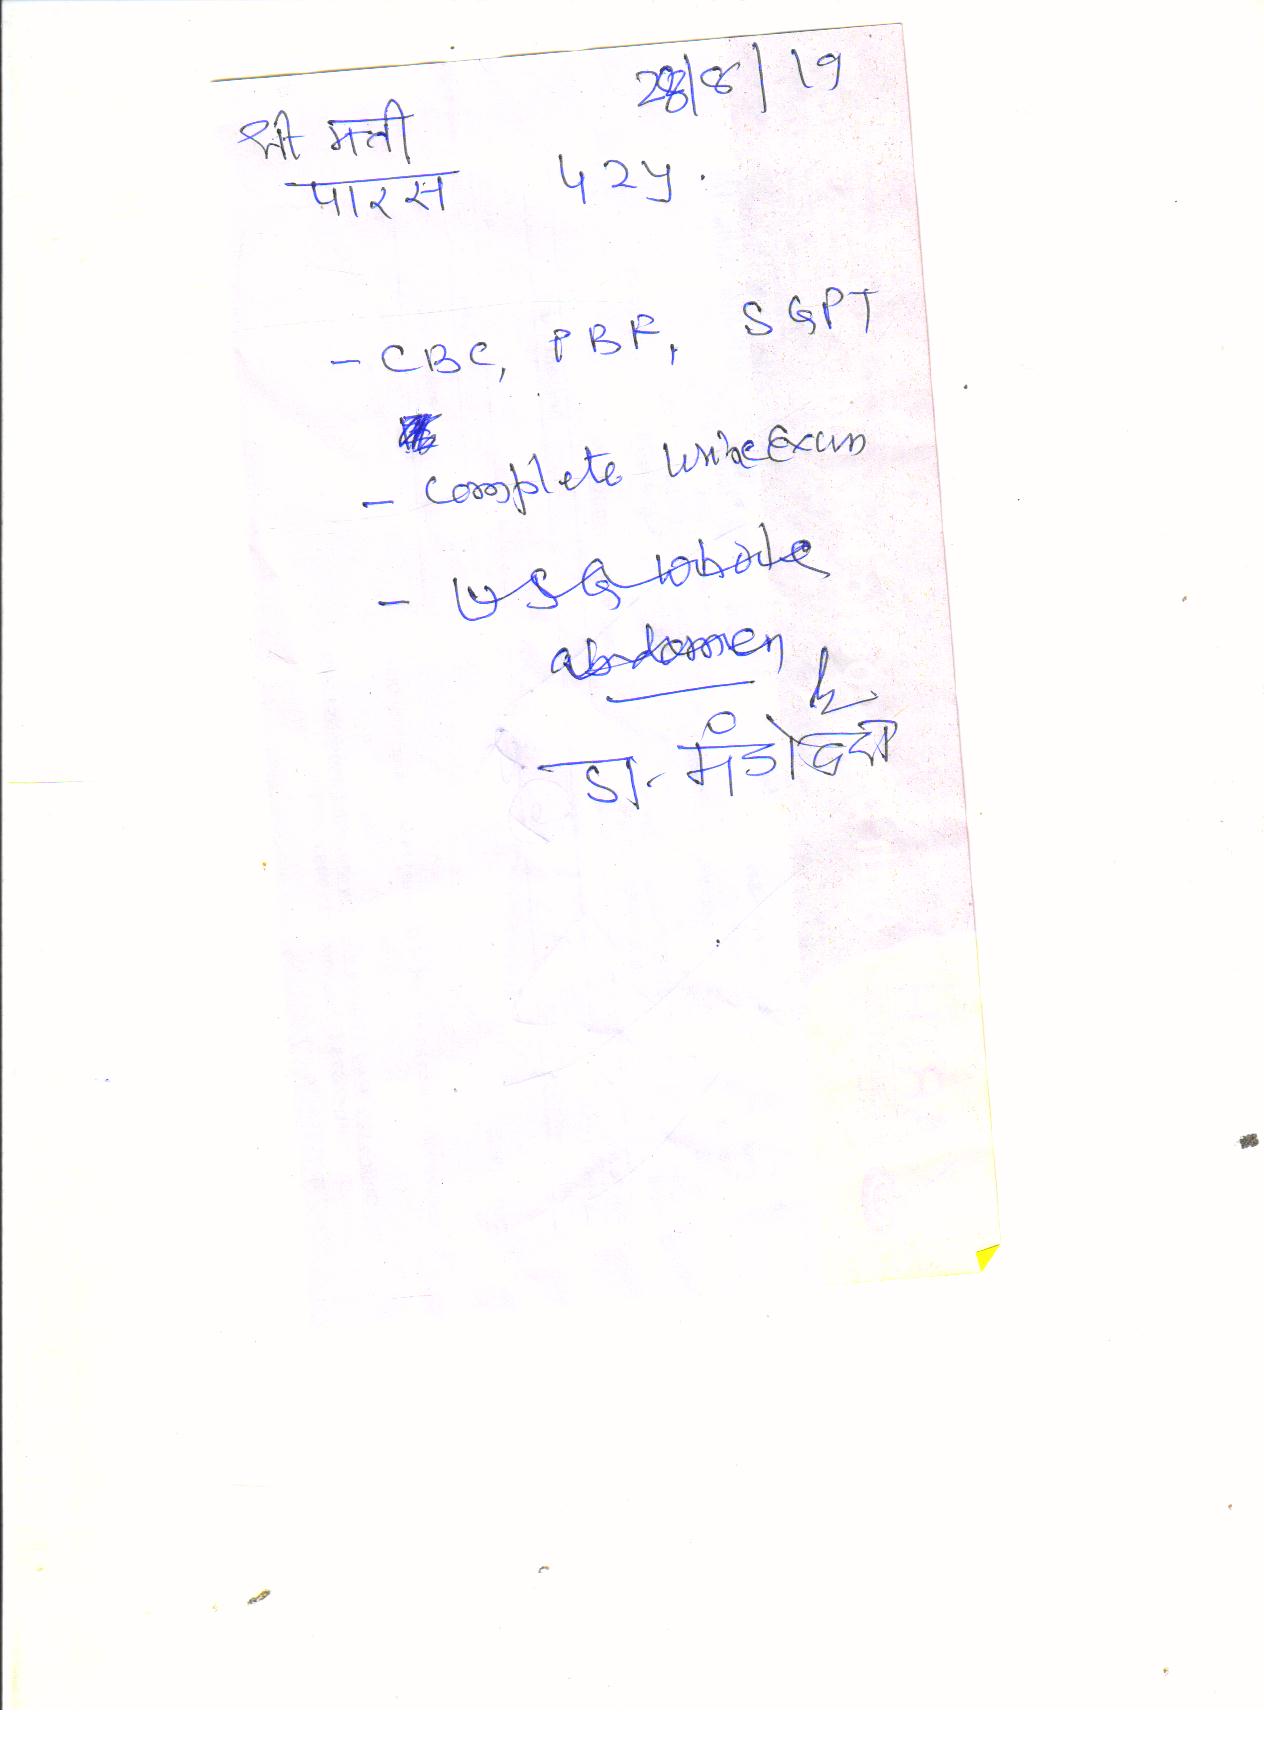 28/8/19
श्रीमती
पारस 42y.
- CBC, PBF, SGPT
- Complete Urine Exam
- USG whole
abdomen
डा.